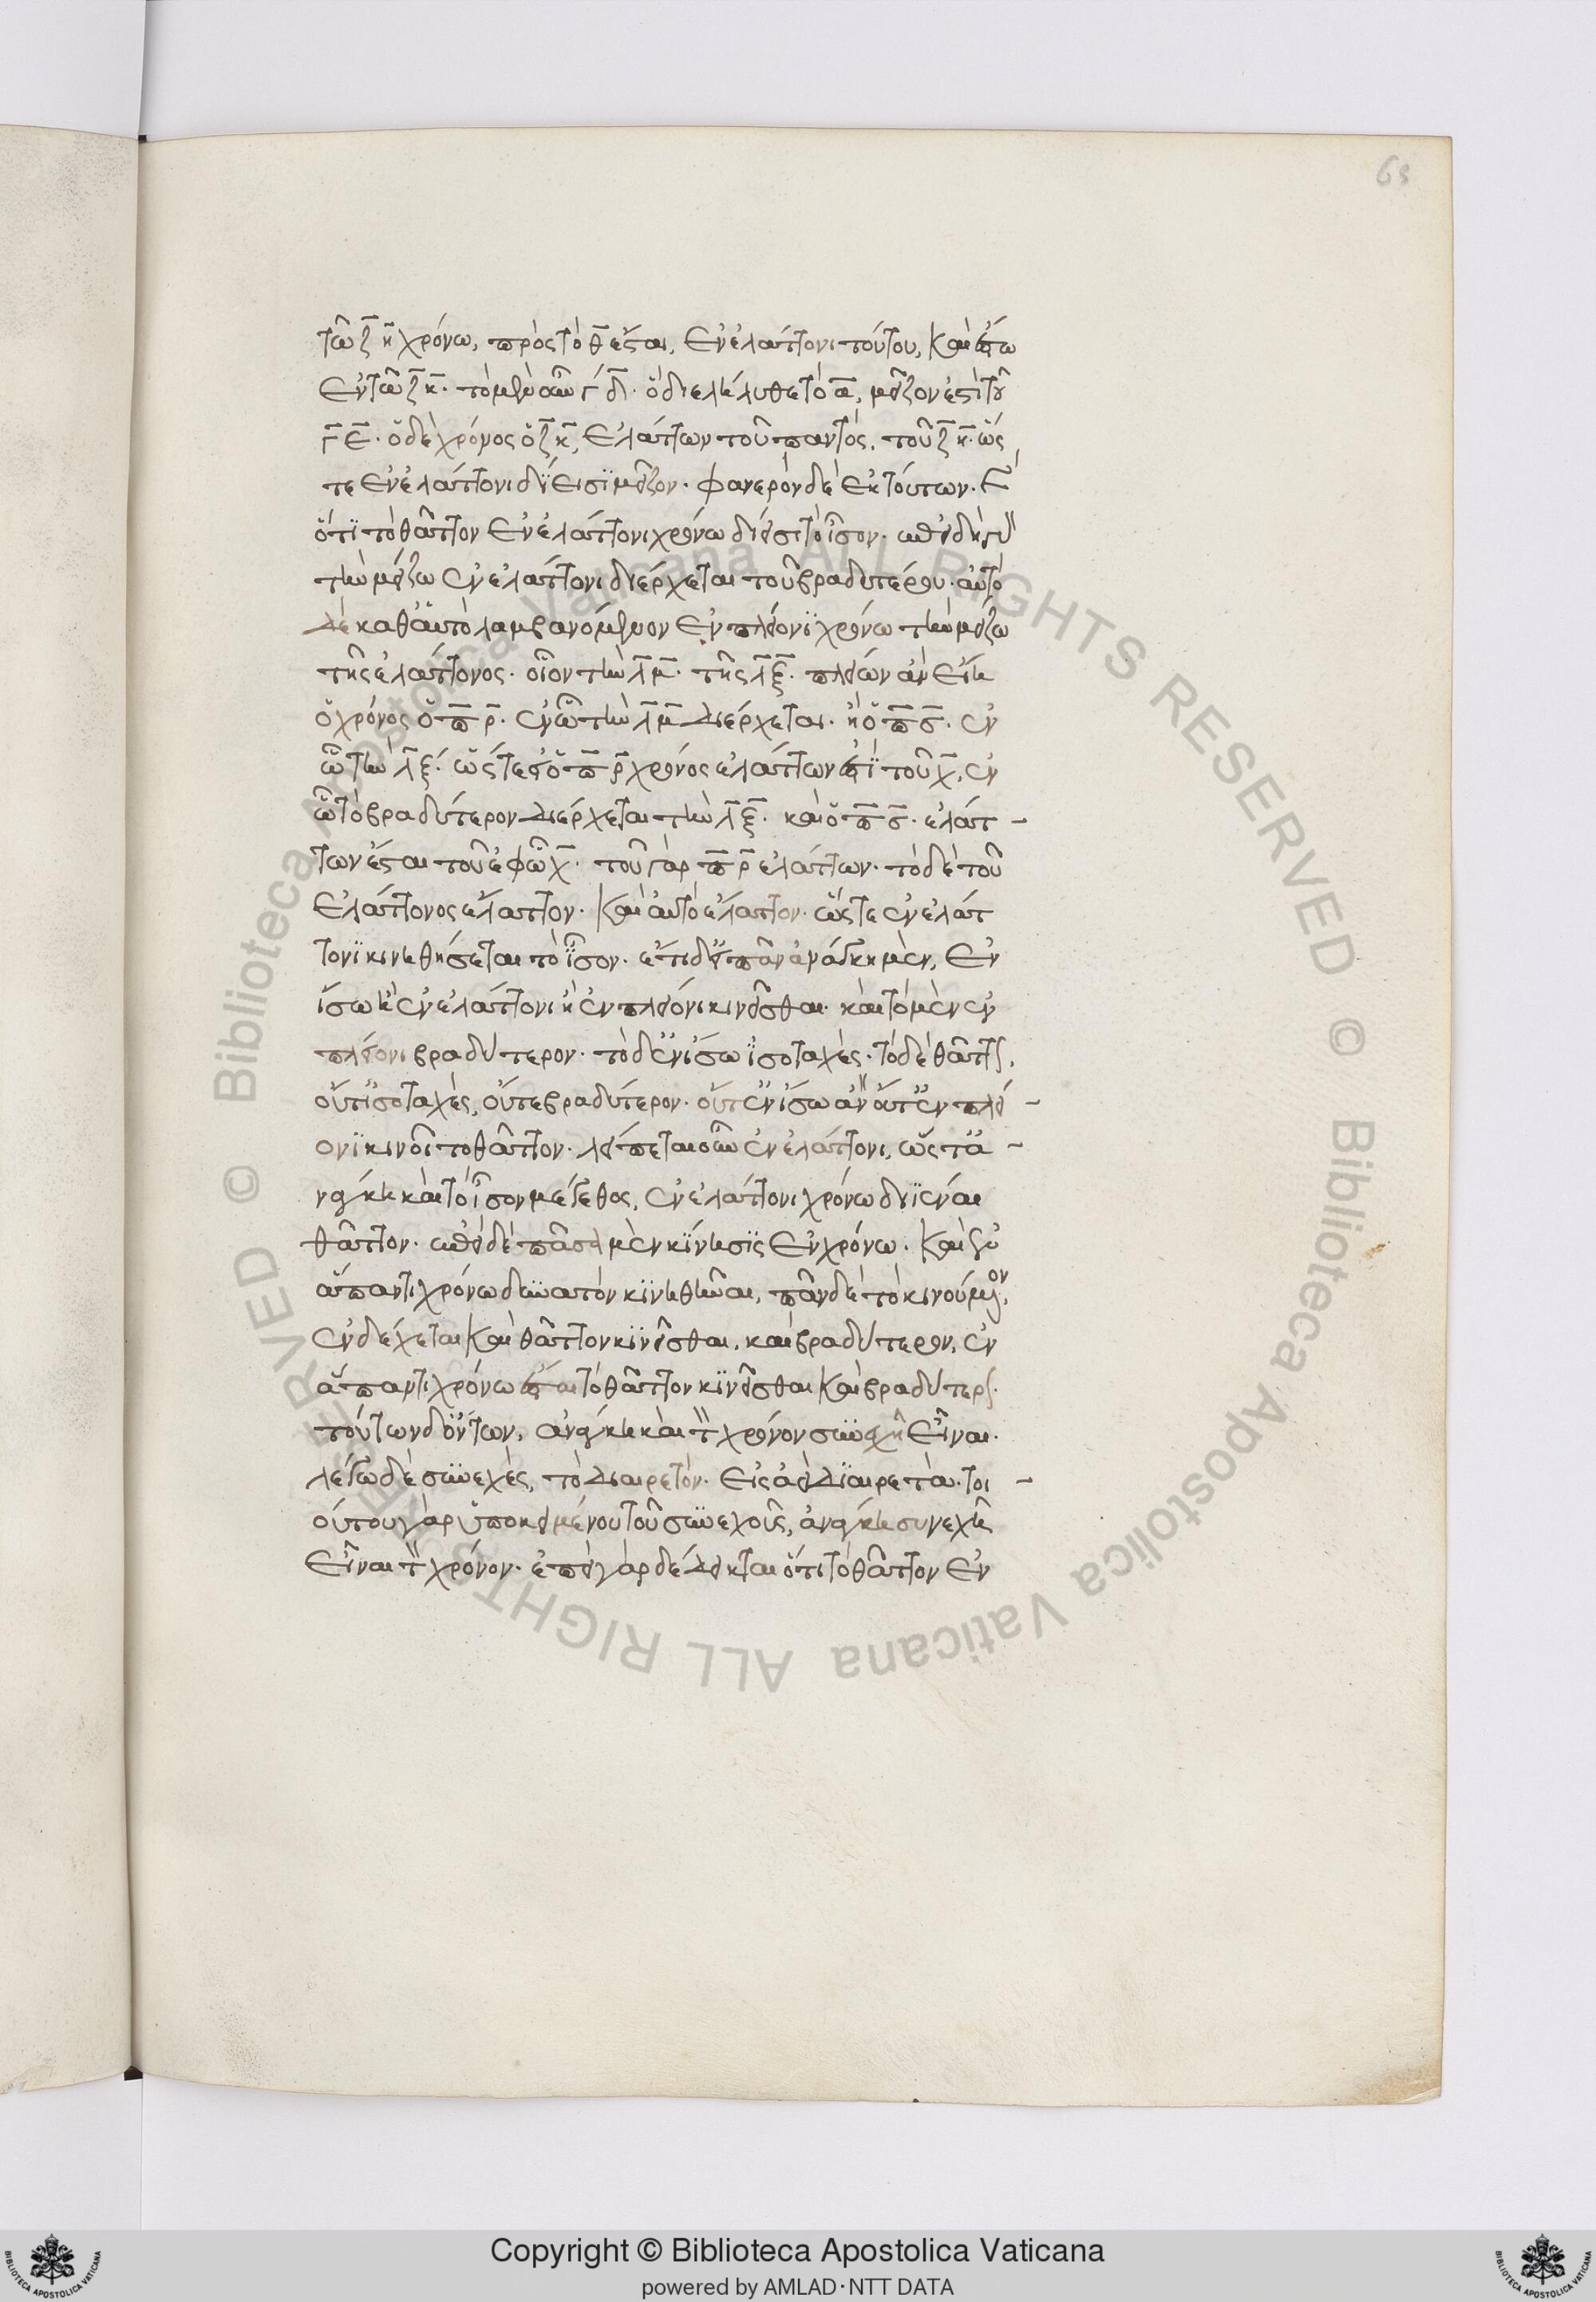 63
τῶ ζ̅ κ̅ χρόνω, πρὸς τὸ θ̅ ἔσται, ἐν ἐλάττονι τούτου, καὶ ἔστω
ἐν τῶ ζ̅ κ̅. τὸ μὲν οὖν γ̅ δ̅. ὃ διελήλυθε τὸ α̅, μεῖζον ἐστὶ τοῦ
γ̅ ε̅. ὁ δὲ χρόνος ὁ ζ̅ κ̅, ἐλάττων τοῦ παντὸς, τοῦ ζ̅ κ̅. ὥς
τε ἐν ἐλάττονι δίεισι μεῖζον. φανερὸν δὲ ἐκ τούτων. καὶ
ὅτι τὸ θᾶττον ἐν ἐλάττονι χρόνω δίεισι τὸ ἴσον. ἐπεὶ δὴ γὰρ
τὴν μείζω ἐν ἐλάττονι διέρχεται τοῦ βραδυτέρου. αὐτὸ
δὲ καθ' αὑτὸ λαμβανόμενον ἐν πλείονι χρόνω τὴν μείζω
τῆς ἐλάττονος. οἷον τὴν λ̅μ̅. τῆς λ̅ξ̅. πλείων ἂν εἴη
ὁ χρόνος ὁ π̅ ρ̅. ἐν ὧ τὴν λ̅μ̅ διέρχεται. ἢ ὁ π̅ σ̅. ἐν
ὧ τὴν λ̅ξ̅. ὥστε εἰ ὁ π̅ ρ̅ χρόνος ἐλάττων ἐστὶ τοῦ χ̅, ἐν
ὧ τὸ βραδύτερον διέρχεται τὴν λ̅ξ̅. καὶ ὁ π̅ σ̅. ἐλάτ -
των ἔσται τοῦ ἐφ' ὧ χ̅. τοῦ γὰρ π̅ ρ̅ ἐλάττων. τὸ δὲ τοῦ
ἐλάττονος ἔλαττον. καὶ αὐτὸ ἔλαττον. ὥστε ἐν ἐλάτ
τονι κινηθήσεται τὸ ἴσον. ἔτι δ' εἰ πᾶν ἀνάγκη μὲν, ἐν
ἴσω ἢ ἐν ἐλάττονι ἢ ἐν πλείονι κινεῖσθαι. καὶ τὸ μὲν ἐν
πλείονι βραδύτερον. τὸ δ' ἐν ἴσω ἰσοταχὲς. τὸ δὲ θᾶττον,
οὔτ' ἰσοταχὲς, οὔτε βραδύτερον. οὔτ' ἐν ἴσω ἂν οὔτ' ἐν πλεί -
ονι κινοῖτο θᾶττον. λείπεται οὖν ἐν ἐλάττονι, ὥστ' ἀ -
νάγκη καὶ τὸ ἴσον μέγεθος, ἐν ἐλάττονι χρόνω διϊέναι
θᾶττον. ἐπεὶ δὲ πᾶσα μὲν κίνησις ἐν χρόνω. καὶ ἐν
ἅπαντι χρόνω δυνατὸν κινηθῆναι, πᾶν δὲ τὸ κινούμενον,
ἐνδέχεται καὶ θᾶττον κινεῖσθαι, καὶ βραδύτερον, ἐν
ἅπαντι χρόνω ἔσται τὸ θᾶττον κινεῖσθαι καὶ βραδύτερον.
τούτων δ' ὄντων, ἀνάγκη καὶ τὸν χρόνον συνεχῆ εἶναι.
λέγω δὲ συνεχὲς, τὸ διαιρετὸν. εἰς ἀεὶ διαιρετὰ. τοι -
ούτου γὰρ ὑποκειμένου τοῦ συνεχοῦς, ἀνάγκη συνεχῆ
εἶναι τὸν χρόνον. ἐπεὶ γὰρ δέδεικται ὅτι τὸ θᾶττον ἐν
Copyright © Biblioteca Apostolica Vaticana
powered by AMLAD·NTT DATA